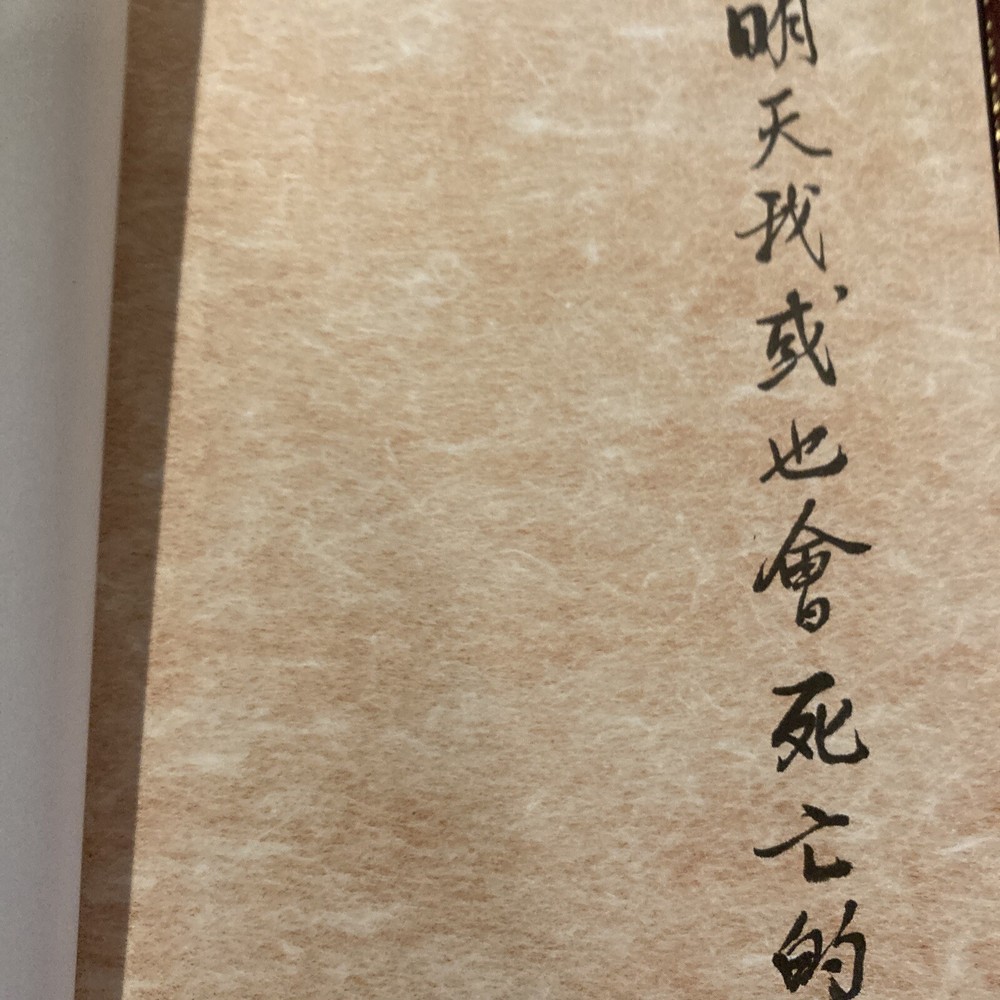 明天我或也會死亡的